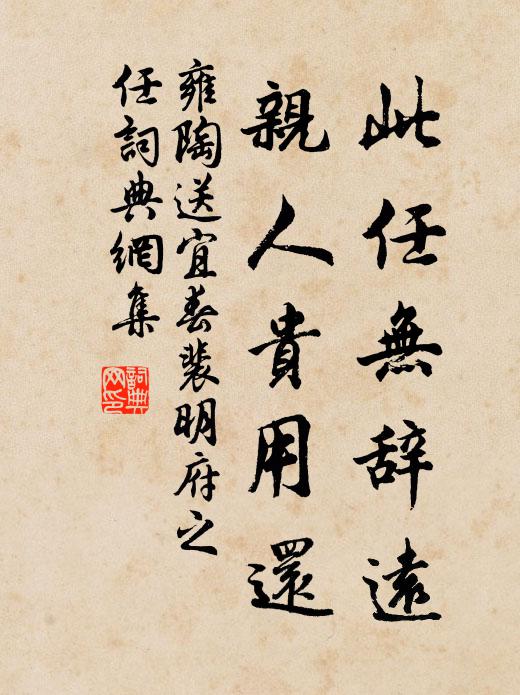 此任無辞遠
親人貴用還
雍陶送宜春裴明府之
任詞典網集
詞典
网印